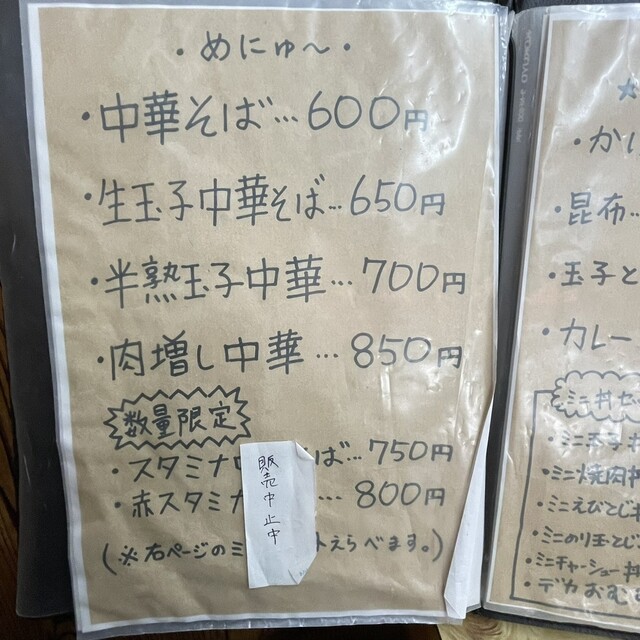 ・めにゅ〜・
・中華そば…600円
・生玉子中華そば…650円
・半熟玉子中華…700円
・肉増し中華…850円
数量限定
・スタミナ ば…750円
・赤スタミナ …800円
(※右ページのミ えらべます。)
販売中止中
★
・かい
・昆布…
・玉子と
・カレー
ミニ丼セ
・ミニ玉子丼
・ミニ焼肉丼
・ミニえびとじ丼
・ミニのり玉とじ
・ミニチャーシュー丼
・デカおむす